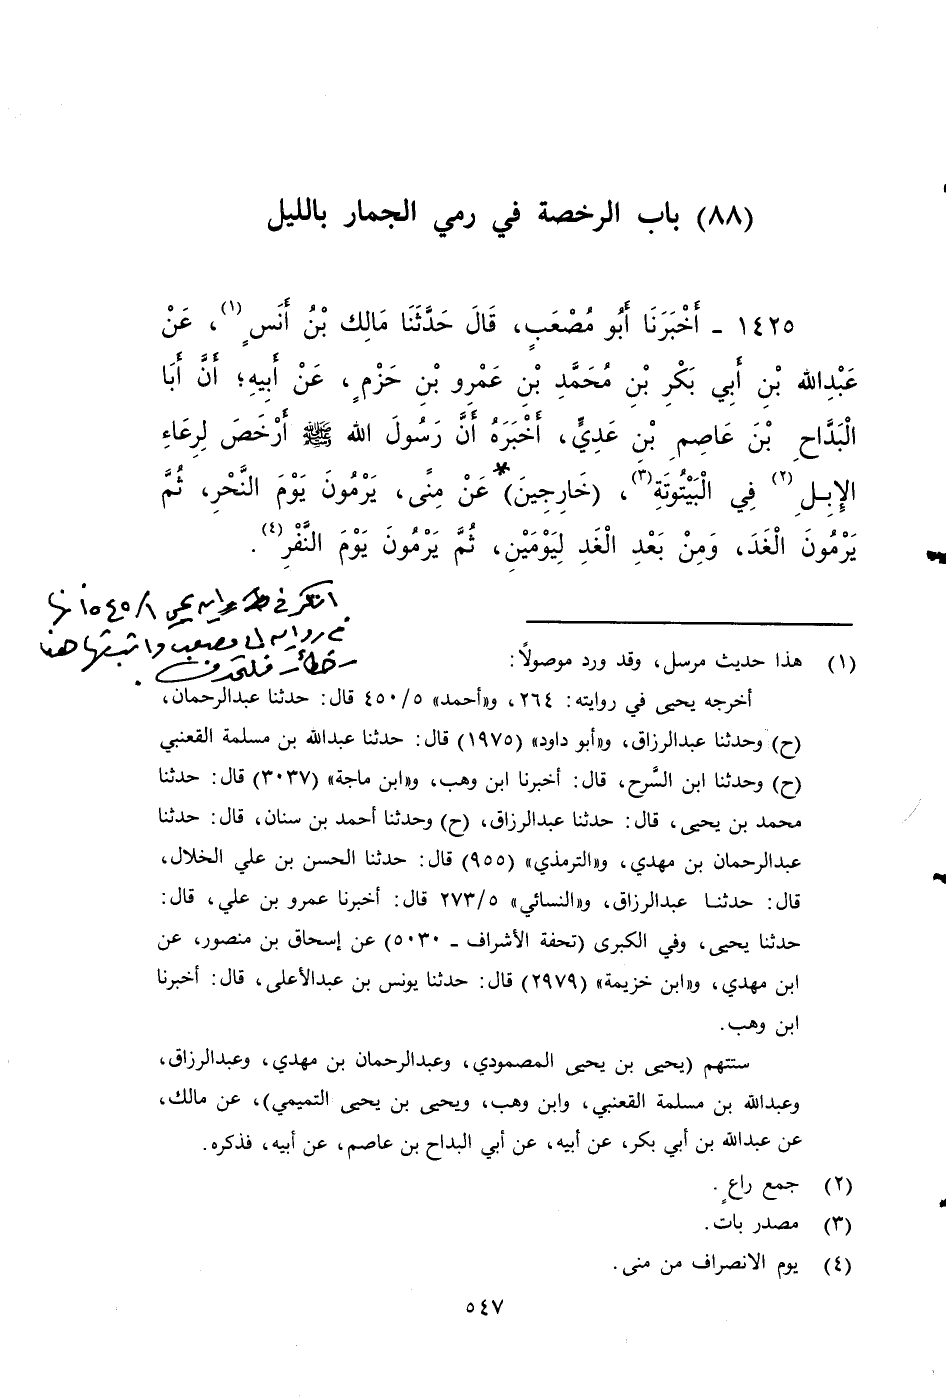 (٨٨) باب الرخصة في رمي الجمار بالليل
١٤٢٥ ـ أَخْبَرَنَا أَبُو مُصْعَبٍ، قَالَ حَدَّثَنَا مَالِك بْنُ أَنَسٍ(١)، عَنْ
عَبْدِالله بْنِ أَبِي بَكْرِ بْنِ مُحَمَّدِ بْنِ عَمْرِو بْنِ حَزْمٍ، عَنْ أَبِيهِ؛ أَنَّ أَبَا
الْبَدَّاحِ بْنَ عَاصِمِ بْنِ عَدِيٍّ، أَخْبَرَهُ أَنَّ رَسُولَ الله ﷺ أَرْخَصَ لِرِعَاءِ
الإِبِلِ(٢) فِي الْبَيْتُوتَةِ(٣)، (خَارِجِينَ)* عَنْ مِنًى، يَرْمُونَ يَوْمَ النَّحْرِ، ثُمَّ
يَرْمُونَ الْغَدَ، وَمِنْ بَعْدِ الْغَدِ لِيَوْمَيْنِ، ثُمَّ يَرْمُونَ يَوْمَ النَّفْرِ(٤).
في رواية أبي مصعب واثبتها هنا
خطأ
(١) هذا حديث مرسل، وقد ورد موصولًا:
أخرجه يحيى في روايته: ٢٦٤، و«أحمد» ٤٥٠/٥ قال: حدثنا عبدالرحمان،
(ح) وحدثنا عبدالرزاق، و«أبو داود» (١٩٧٥) قال: حدثنا عبدالله بن مسلمة القعنبي
(ح) وحدثنا ابن السَّرح، قال: أخبرنا ابن وهب، و«ابن ماجة» (٣٠٣٧) قال: حدثنا
محمد بن يحيى، قال: حدثنا عبدالرزاق، (ح) وحدثنا أحمد بن سنان، قال: حدثنا
عبدالرحمان بن مهدي، و«الترمذي» (٩٥٥) قال: حدثنا الحسن بن علي الخلال،
قال: حدثنا عبدالرزاق، و«النسائي» ٢٧٣/٥ قال: أخبرنا عمرو بن علي، قال:
حدثنا يحيى، وفي الكبرى (تحفة الأشراف ـ ٥٠٣٠) عن إسحاق بن منصور، عن
ابن مهدي، و«ابن خزيمة» (٢٩٧٩) قال: حدثنا يونس بن عبدالأعلى، قال: أخبرنا
ابن وهب.
ستتهم (يحيى بن يحيى المصمودي، وعبدالرحمان بن مهدي، وعبدالرزاق،
وعبدالله بن مسلمة القعنبي، وابن وهب، ويحيى بن يحيى التميمي)، عن مالك،
عن عبدالله بن أبي بكر، عن أبيه، عن أبي البداح بن عاصم، عن أبيه، فذكره.
(٢) جمع راعٍ.
(٣) مصدر بات.
(٤) يوم الانصراف من منى.
٥٤٧